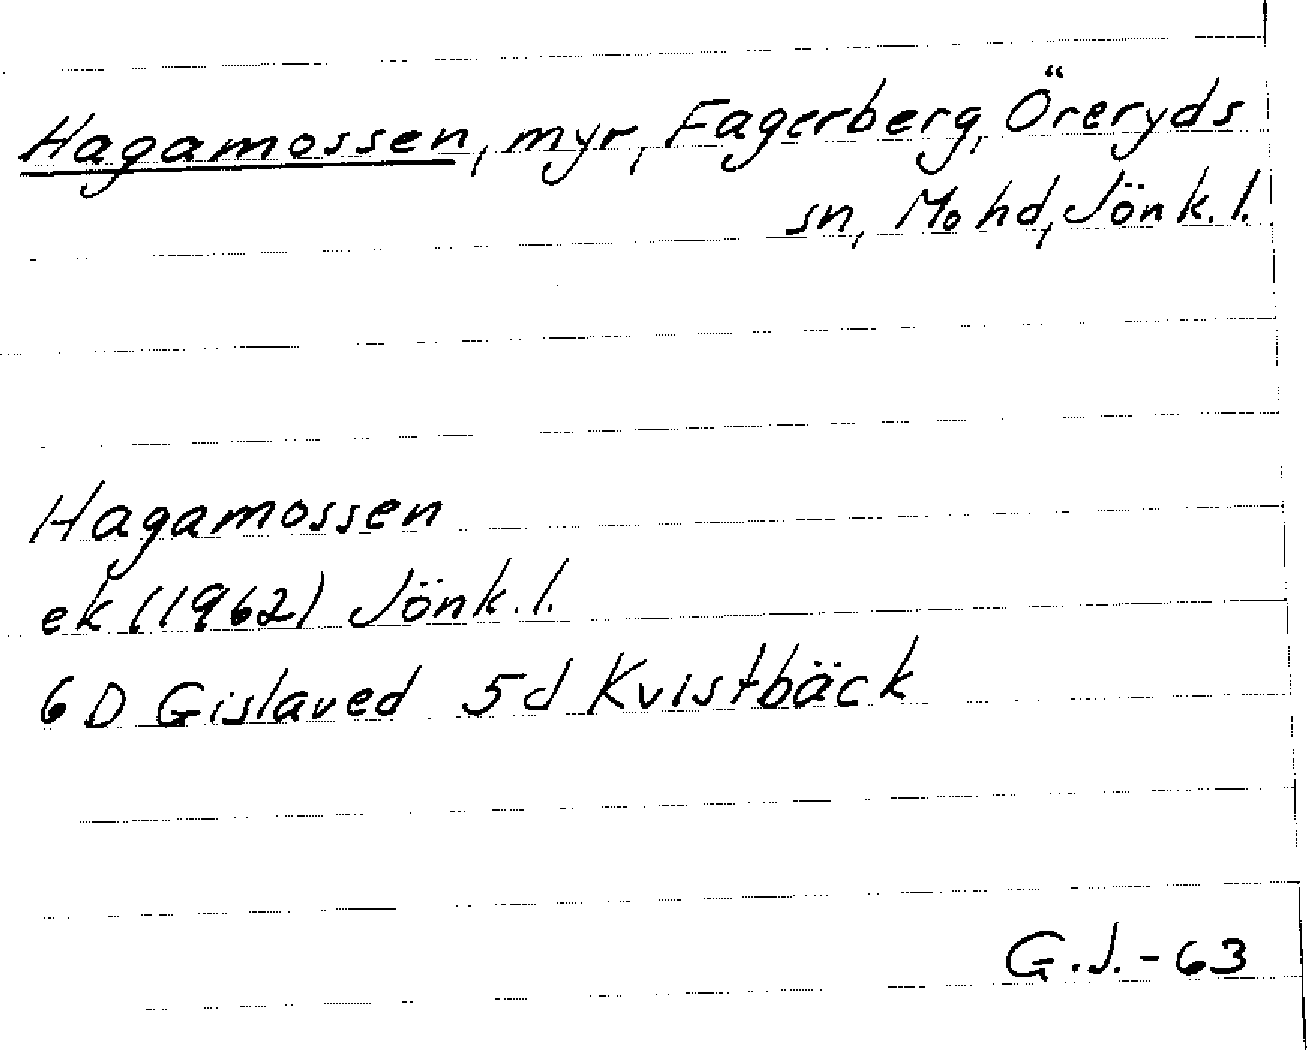 Hagamossen, myr, Fagerberg, Öreryds
sn, Mo hd, Jönk. l.
Hagamossen
ek (1962) Jönk. l.
6 D Gislaved 5d Kvistbäck
G.J.-63